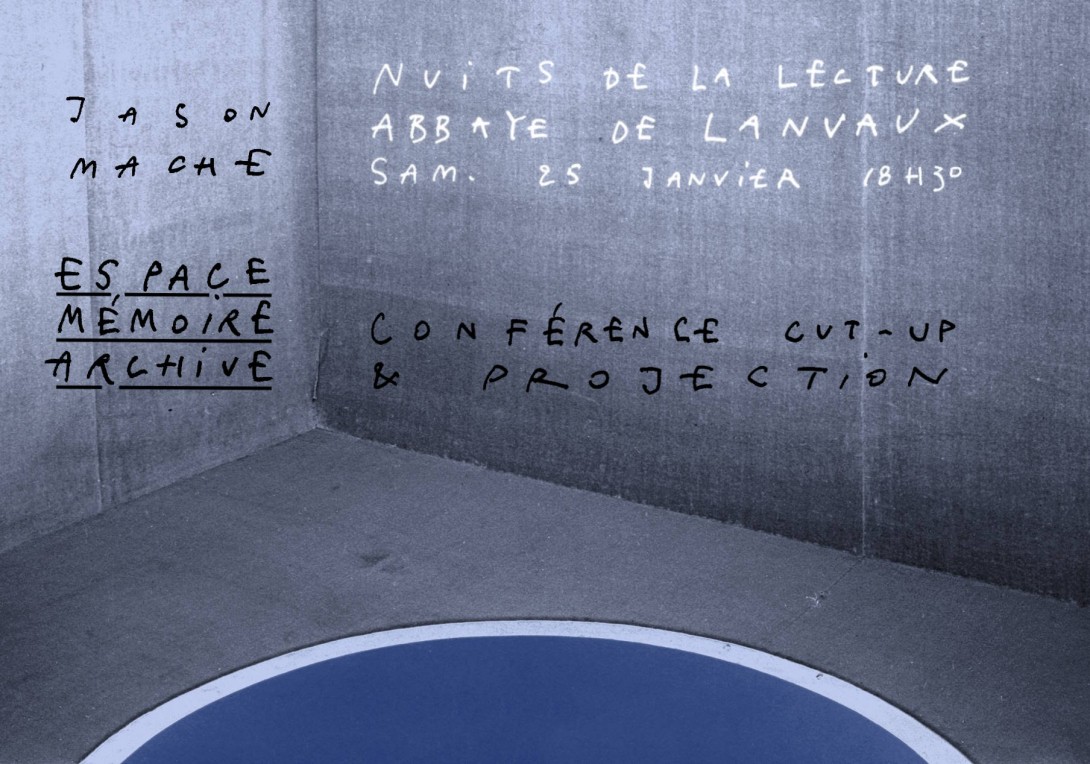 JASON
MACHE
NUiTS DE LA LECTURE
ABBAYE DE LANVAUX
SAM. 25 JANViER 18H30
ESPACE
MÉMOiRE
ARCHiVE
CONFÉRENCE CUT-UP
& PROJECTiON